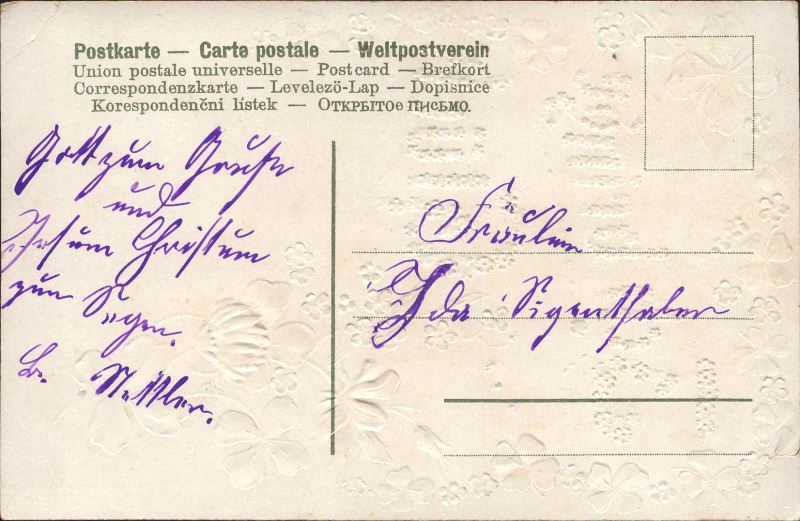 Postkarte — Carte postale — Weltpostverein
Union postale universelle — Post card — Brefkort
Correspondenzkarte — Levelezö-Lap — Dopisnice
Korespondenčni lístek — Открытое письмо.
Gott zum Gruße
und
Jesum Christum
zum Segen.
B. Stettler.
Fräulein
Ida Sigenthaler